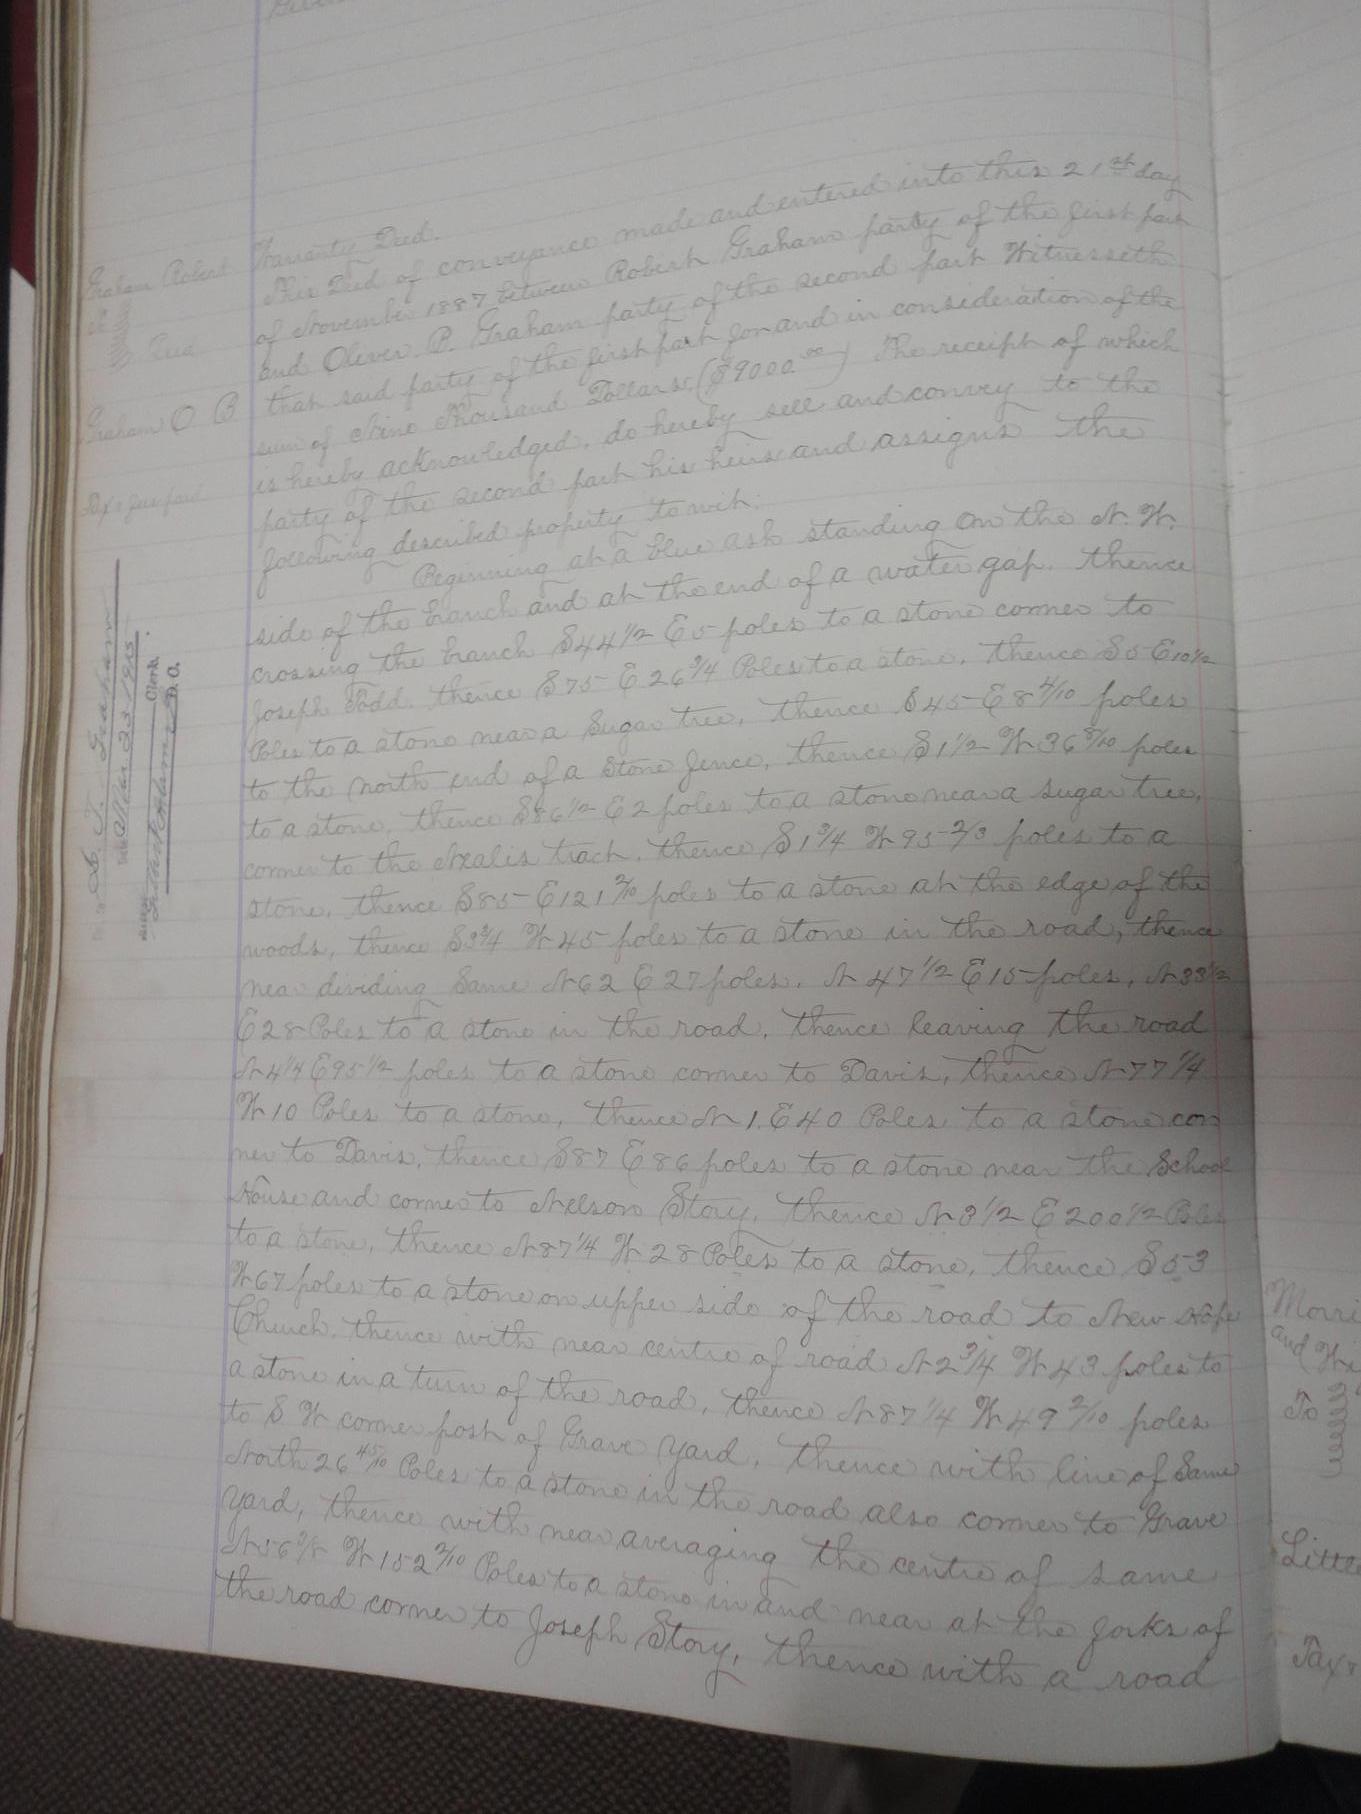 Graham Robert
Deed
Graham O P
Tax & fees paid
Warranty Deed.
This Deed of conveyance made and entered into this 21st day
of November 1887 between Robert Graham party of the first part
and Oliver P. Graham party of the second part Witnesseth
that said party of the first part for and in consideration of the
sum of Nine Thousand Dollars ($9000.00) The receipt of which
is hereby acknowledged, do hereby sell and convey to the
party of the second part his heirs and assigns the
following described property to wit.
Beginning at a blue ash standing on the N. W.
side of the branch and at the end of a water gap. thence
crossing the branch S 44 1/2 E 5 poles to a stone corner to
Joseph Todd. thence S 75 E 26 3/4 Poles to a stone, thence S 5 E 10 1/2
Poles to a stone near a Sugar tree, thence S 45 E 8 4/10 poles
to the north end of a Stone fence, thence S 1 1/2 W 36 8/10 poles
to a stone, thence S 86 1/2 E 2 poles to a stone near a sugar tree,
corner to the tract, thence S 1 3/4 W 95 2/3 poles to a
stone, thence S 85 E 121 2/10 poles to a stone at the edge of the
woods, thence S 3 3/4 W 45 poles to a stone in the road, thence
near dividing Same N 62 E 27 poles, N 47 1/2 E 15 poles, N 33 1/2
E 28 Poles to a stone in the road, thence leaving the road
N 4 1/4 E 95 1/2 poles to a stone corner to Davis, thence N 77 1/4
W 10 Poles to a stone, thence N 1. E 40 Poles to a stone cor
ner to Davis, thence S 87 E 86 poles to a stone near the School
House and corner to Nelson Story, thence N 3 1/2 E 200 1/2 Poles
to a stone, thence N 87 1/4 W 28 Poles to a stone, thence S 53
W 67 poles to a stone on upper side of the road to New Hope
Church. thence with near centre of road N 2 3/4 W 43 poles to
a stone in a turn of the road, thence N 87 1/4 W 49 2/10 poles
to S W corner post of Grave Yard, thence with line of Same
North 26 45/10 Poles to a stone in the road also corner to Grave
Yard, thence with near averaging the centre of same
N 56 W 152 2/10 Poles to a stone in and near at the forks of
the road corner to Joseph Story, thence with a road
Graham
Clerk.
D. C.
Morri
and Wi
To
Little
Tax &